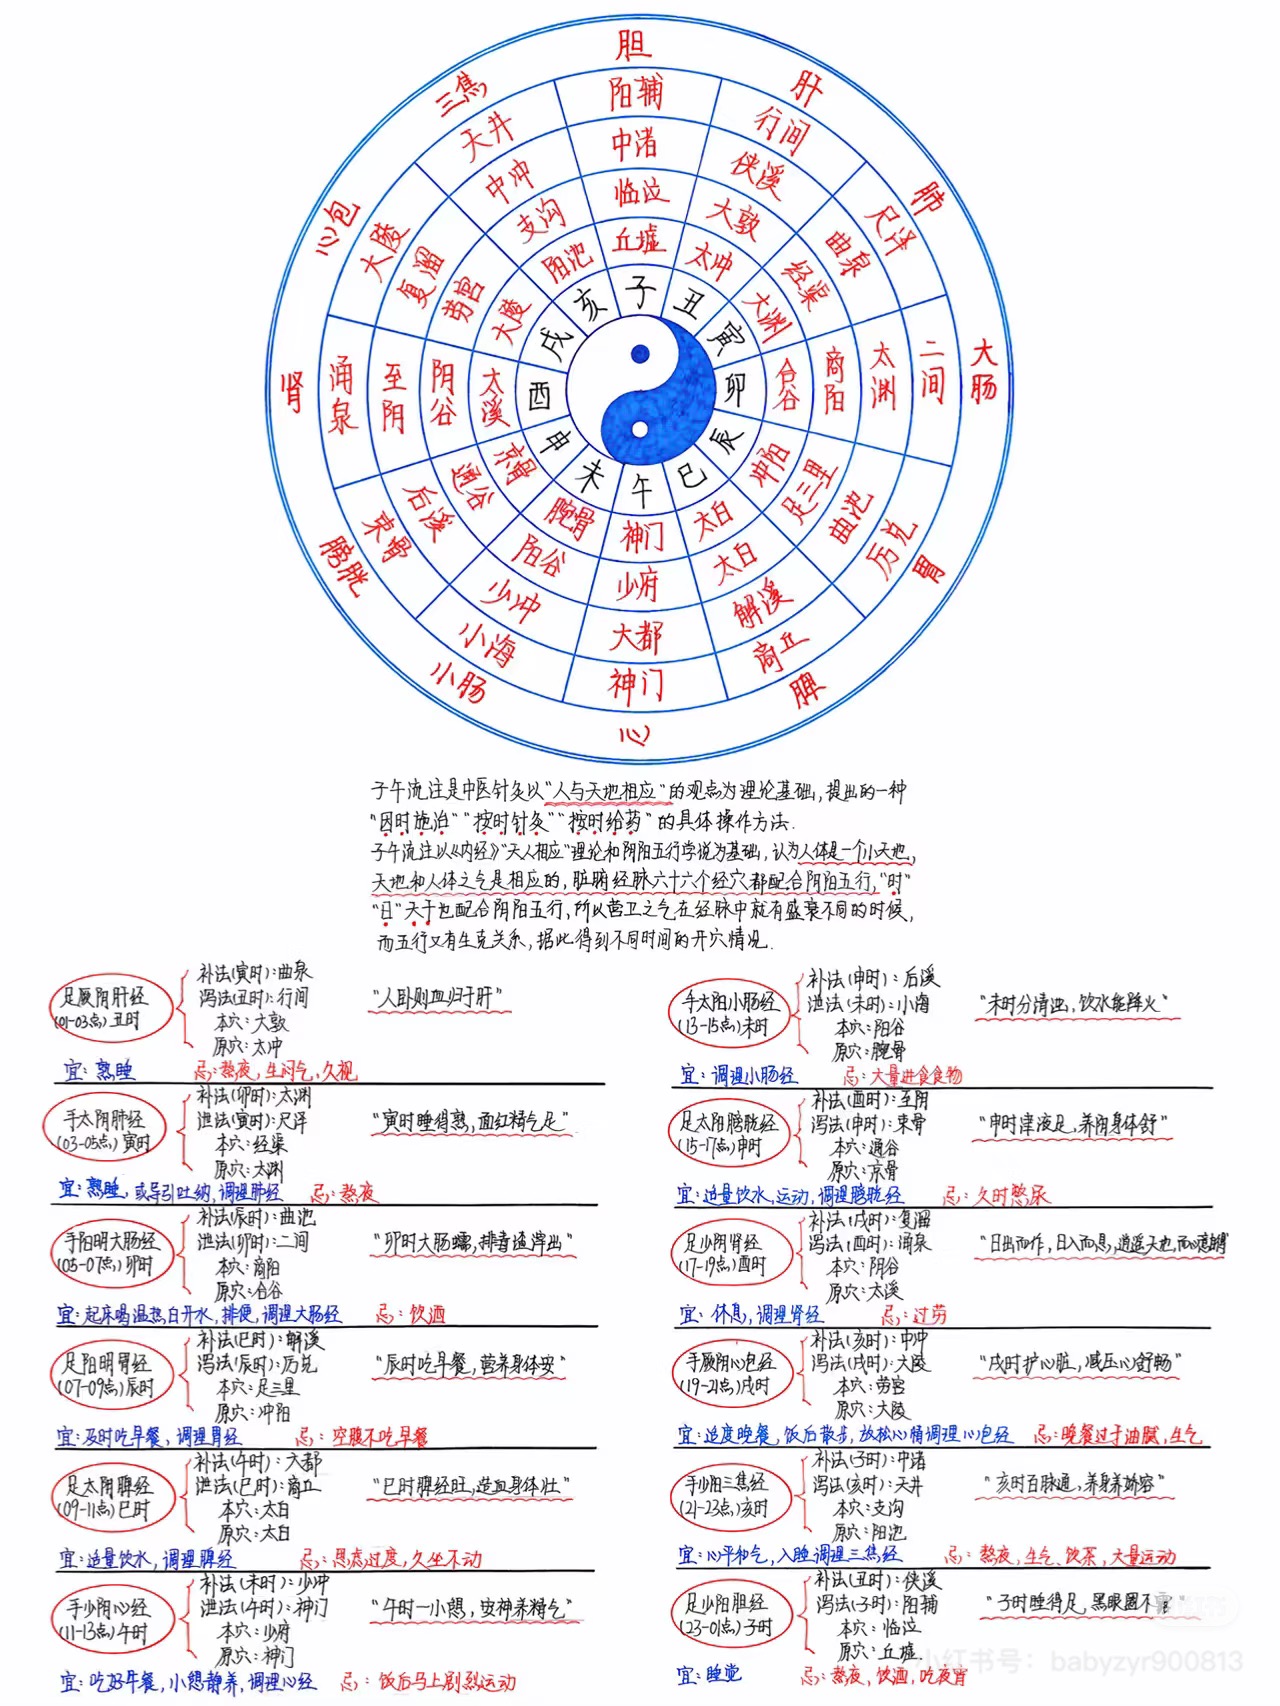 胆
肝
肺
大肠
胃
脾
心
小肠
膀胱
肾
心包
三焦
阳辅
行间
尺泽
二间
厉兑
商丘
神门
小海
束骨
涌泉
大陵
天井
中渚
侠溪
曲泉
太渊
曲池
解溪
大都
少冲
后溪
至阴
复溜
中冲
临泣
大敦
经渠
商阳
足三里
太白
少府
阳谷
通谷
阴谷
劳宫
支沟
丘墟
太冲
大渊
合谷
冲阳
太白
神门
腕骨
京骨
太溪
大陵
阳池
子
丑
寅
卯
辰
巳
午
未
申
酉
戌
亥
子午流注是中医针灸以"人与天地相应"的观点为理论基础,提出的一种
"因时施治""按时针灸""按时给药"的具体操作方法.
子午流注以《内经》"天人相应"理论和阴阳五行学说为基础,认为人体是一个小天地,
天地和人体之气是相应的,脏腑经脉六十六个经穴都配合阴阳五行,"时"
"日"天干也配合阴阳五行,所以营卫之气在经脉中就有盛衰不同的时候,
而五行又有生克关系,据此得到不同时间的开穴情况.
足厥阴肝经
(01-03点)丑时
补法(寅时):曲泉
泻法(丑时):行间
本穴:大敦
原穴:太冲
"人卧则血归于肝"
宜:熟睡 忌:熬夜,生闷气,久视
手太阴肺经
(03-05点)寅时
补法(卯时):太渊
泄法(寅时):尺泽
本穴:经渠
原穴:太渊
"寅时睡得熟,面红精气足"
宜:熟睡,或导引吐纳,调理肺经 忌:熬夜
手阳明大肠经
(05-07点)卯时
补法(辰时):曲池
泄法(卯时):二间
本穴:商阳
原穴:合谷
"卯时大肠蠕,排毒渣滓出"
宜:起床喝温热白开水,排便,调理大肠经 忌:饮酒
足阳明胃经
(07-09点)辰时
补法(巳时):解溪
泻法(辰时):厉兑
本穴:足三里
原穴:冲阳
"辰时吃早餐,营养身体安"
宜:及时吃早餐,调理胃经 忌:空腹不吃早餐
足太阴脾经
(09-11点)巳时
补法(午时):大都
泄法(巳时):商丘
本穴:太白
原穴:太白
"巳时脾经旺,造血身体壮"
宜:适量饮水,调理脾经 忌:思虑过度,久坐不动
手少阴心经
(11-13点)午时
补法(未时):少冲
泄法(午时):神门
本穴:少府
原穴:神门
"午时一小憩,安神养精气"
宜:吃好午餐,小憩静养,调理心经 忌:饭后马上剧烈运动
手太阳小肠经
(13-15点)未时
补法(申时):后溪
泄法(未时):小海
本穴:阳谷
原穴:腕骨
"未时分清浊,饮水能降火"
宜:调理小肠经 忌:大量进食食物
足太阳膀胱经
(15-17点)申时
补法(酉时):至阴
泻法(申时):束骨
本穴:通谷
原穴:京骨
"申时津液足,养阴身体舒"
宜:适量饮水,运动,调理膀胱经 忌:久时憋尿
足少阴肾经
(17-19点)酉时
补法(戌时):复溜
泻法(酉时):涌泉
本穴:阴谷
原穴:太溪
"日出而作,日入而息,逍遥天地,而心意自得"
宜:休息,调理肾经 忌:过劳
手厥阴心包经
(19-21点)戌时
补法(亥时):中冲
泻法(戌时):大陵
本穴:劳宫
原穴:大陵
"戌时护心脏,减压心舒畅"
宜:适度晚餐,饭后散步,放松心情调理心包经 忌:晚餐过于油腻,生气
手少阳三焦经
(21-23点)亥时
补法(子时):中渚
泻法(亥时):天井
本穴:支沟
原穴:阳池
"亥时百脉通,养身养娇容"
宜:心平和气,入睡调理三焦经 忌:熬夜,生气,饮茶,大量运动
足少阳胆经
(23-01点)子时
补法(丑时):侠溪
泻法(子时):阳辅
本穴:临泣
原穴:丘墟.
"子时睡得足,黑眼圈不露"
宜:睡觉 忌:熬夜,饮酒,吃夜宵
小红书号:babyzyr900813